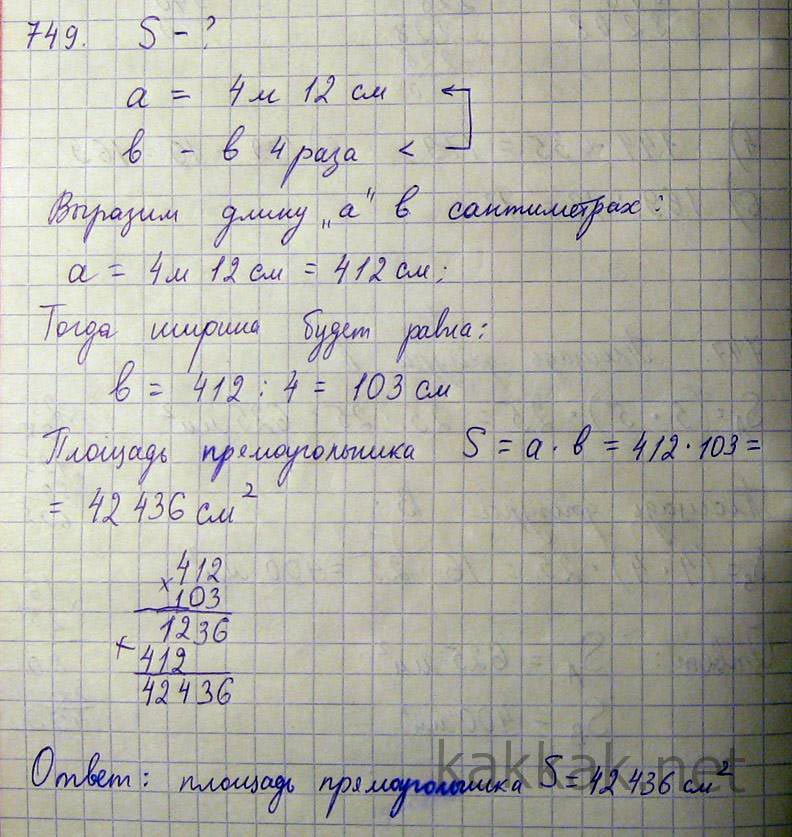 749. S - ?
a = 4м 12 см
в - в 4 раза <
Выразим длину „а" в сантиметрах:
a = 4м 12 см = 412 см;
Тогда ширина будет равна:
в = 412 : 4 = 103 см
Площадь прямоугольника S = a · в = 412 · 103 =
= 42 436 см²
412
× 103
1236
+ 412
42436
Ответ: площадь прямоугольника S = 42 436 см²
kakkak.net